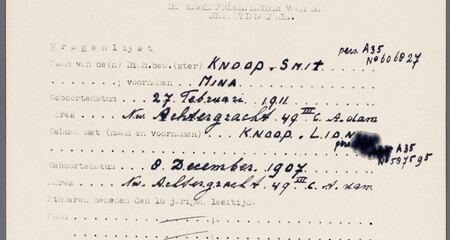 V r a g e n l i j s t
pers. A35
Naam van de(n) Dienbew.(ster) KNOOP-SMIT No 606827
; voornamen MINA
Geboortedatum 27 Februari 1911
Adres Nw. Achtergracht 49 III C. A.dam
Gehuwd met (naam en voornamen) KNOOP. LION
pers A35
No 597595
Geboortedatum 8. December. 1907
Adres Nw. Achtergracht 49 III C. A. dam
Kinderen beneden den 16 jarigen leeftijd:
Naam